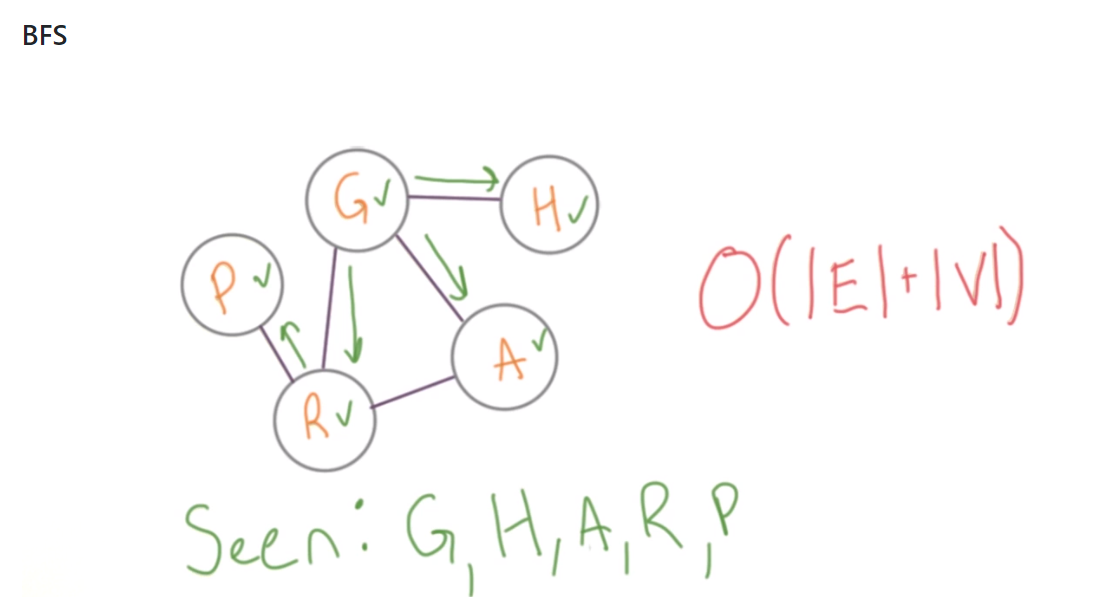 BFS
G✓
H✓
P✓
A✓
R✓
O(|E|+|V|)
Seen: G, H, A, R, P